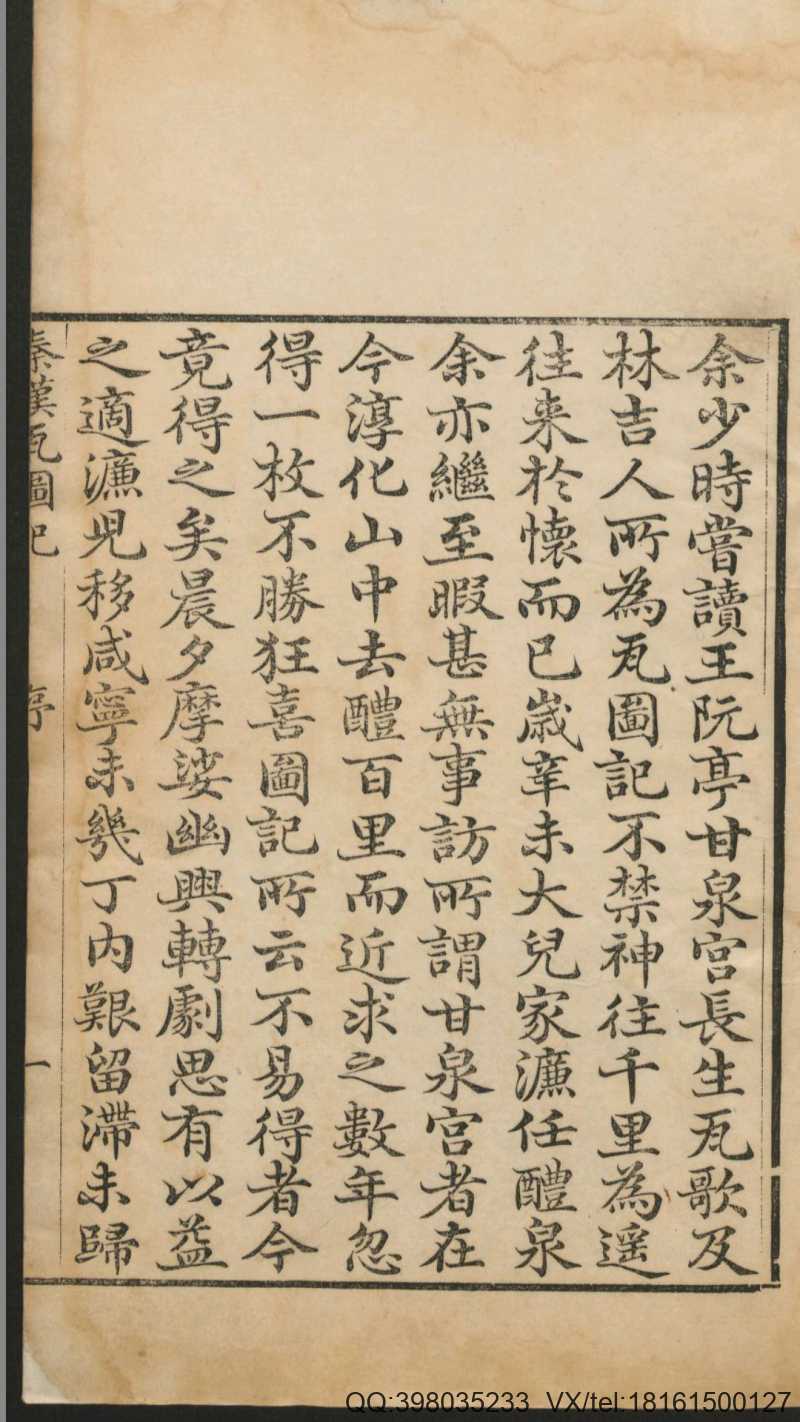 余少時嘗讀王阮亭甘泉宮長生瓦歌及
林吉人所為瓦圖記不禁神往千里為遥
往来於懷而已歲辛未大兒家濂任醴泉
余亦繼至暇甚無事訪所謂甘泉宮者在
今淳化山中去醴百里而近求之數年忽
得一枚不勝狂喜圖記所云不易得者今
竟得之矣晨夕摩娑幽興轉劇思有以益
之適濂兒移咸寧未幾丁内艱留滯未歸
秦漢瓦圖記 序 一
QQ:398035233 VX/tel:18161500127